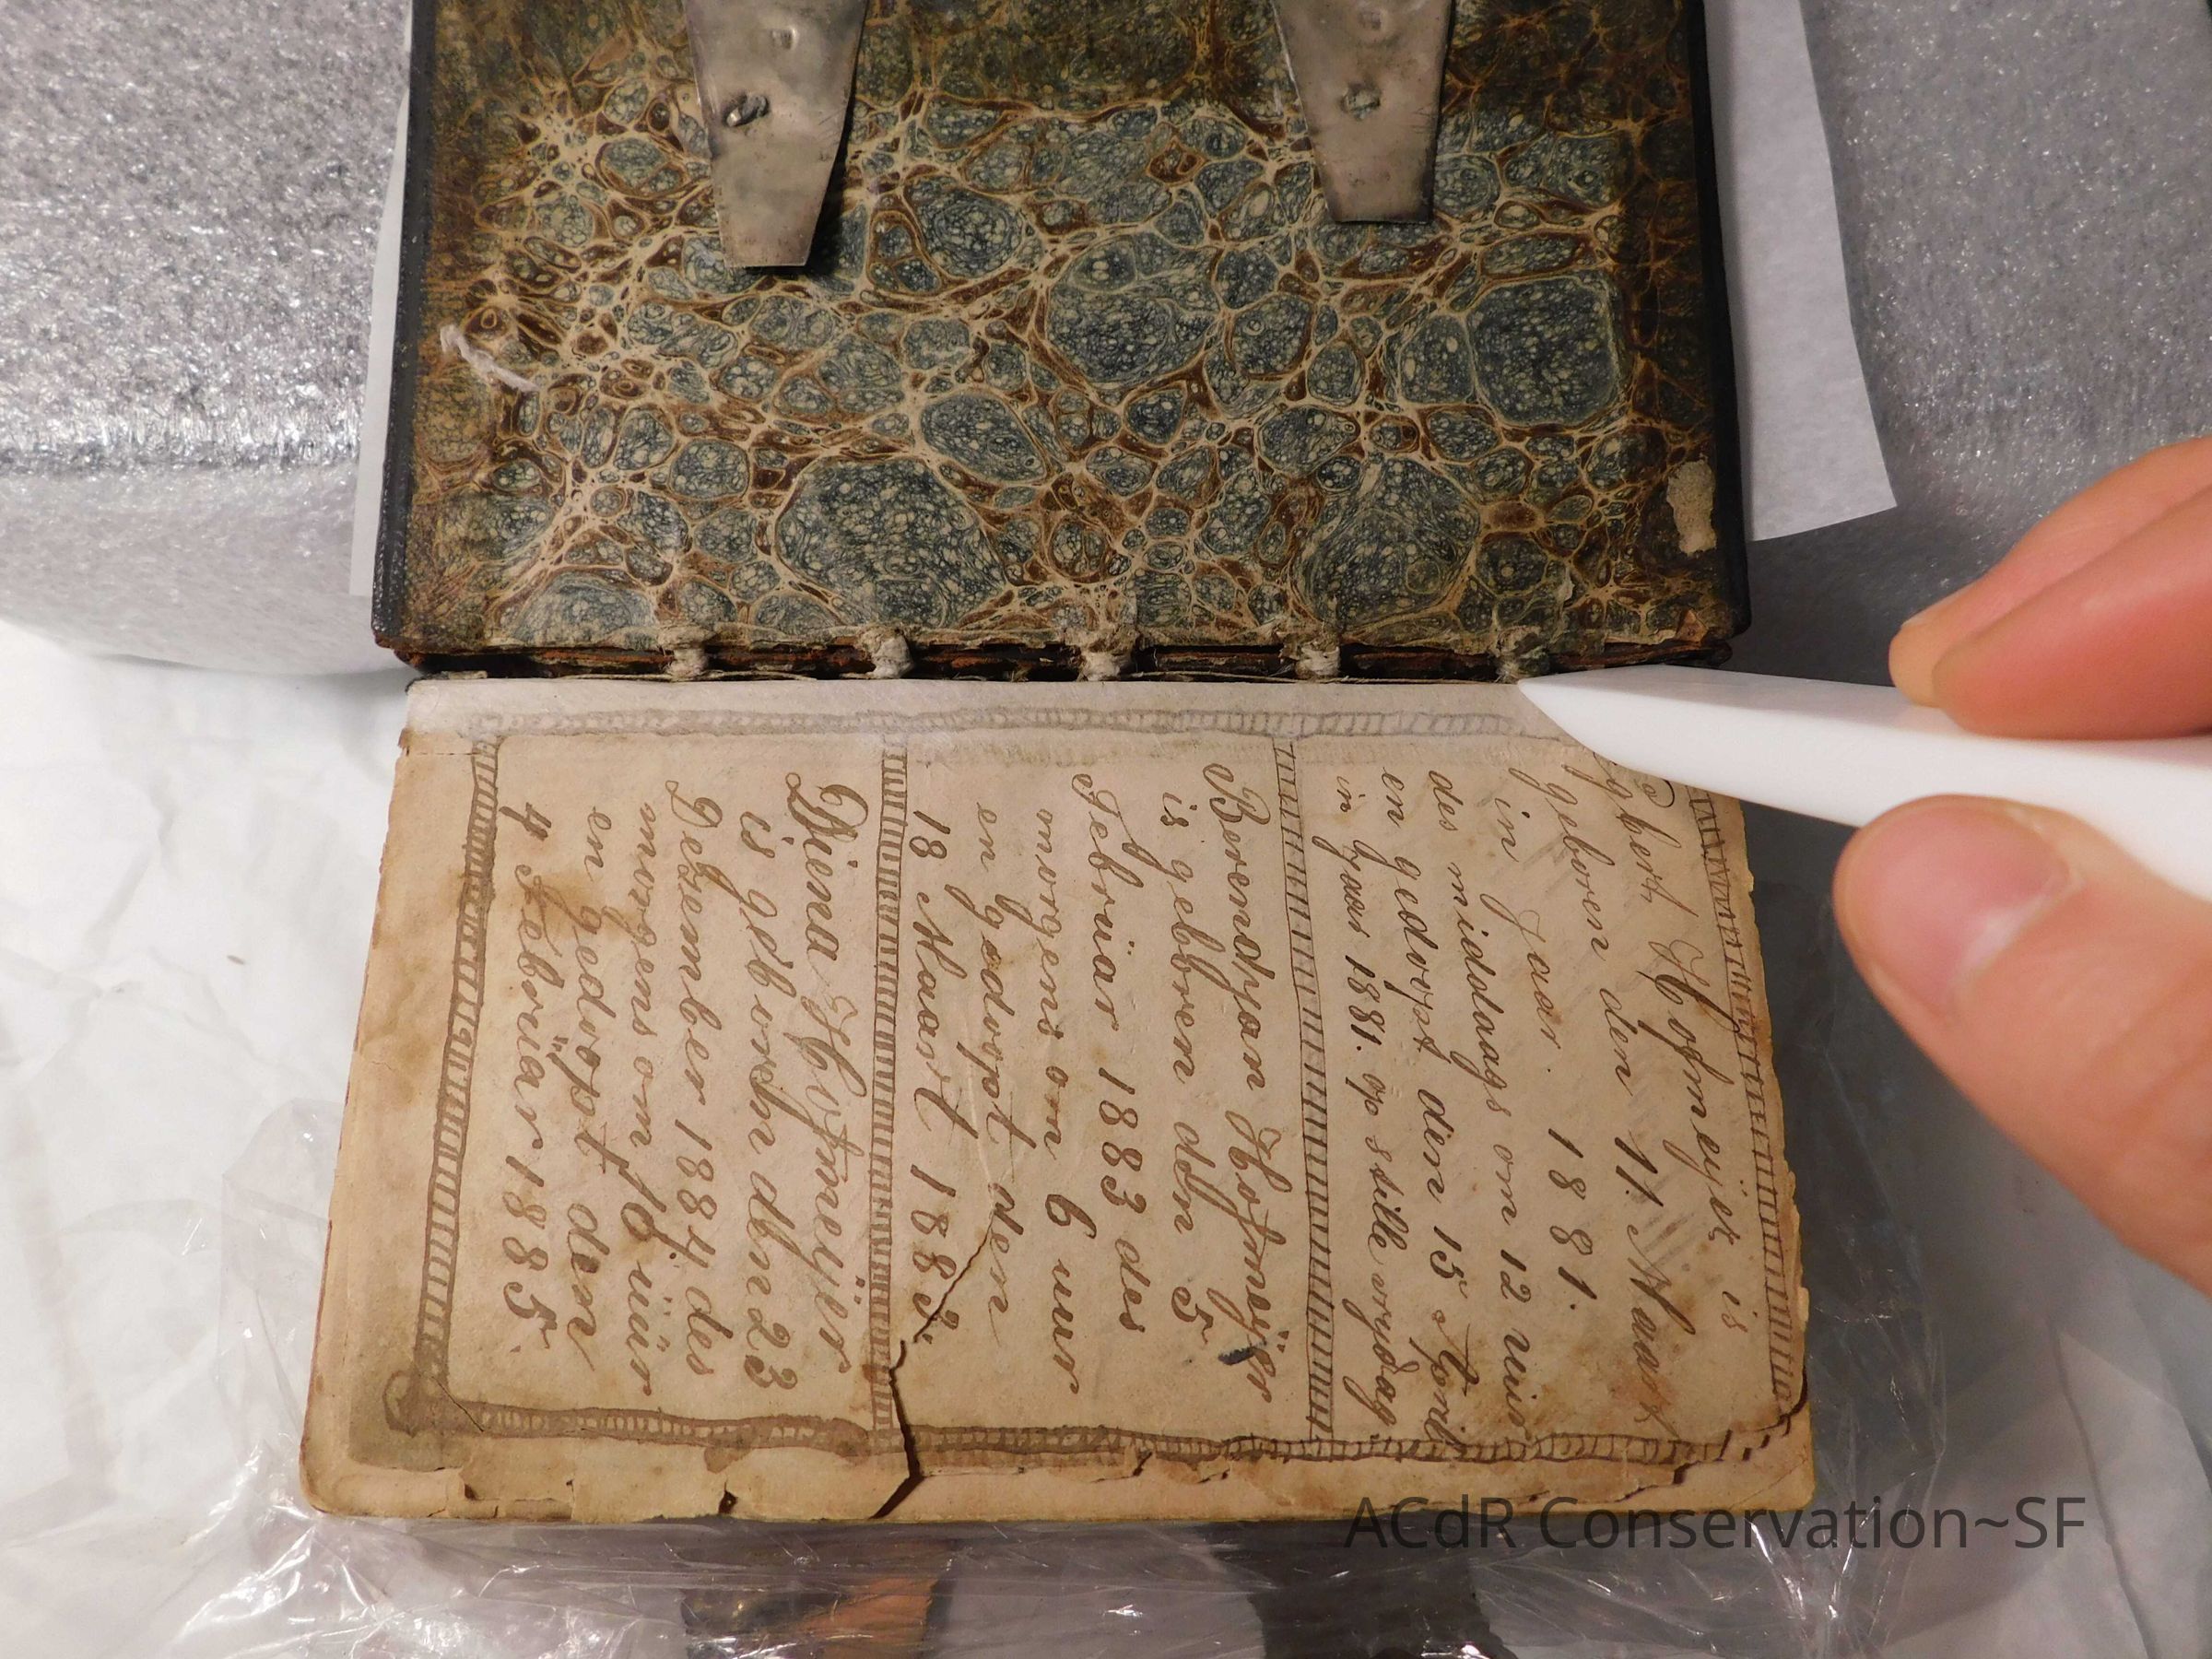 gbert Hofmeyer is
geboren den 11. Maart
in Jaar. 1881.
des middaags om 12 uur
en gedoopt den 15 April
in Jaar 1881. op stille vrydag
Berendyan Hofmeÿer
is gebören dën 5
Februar 1883 des
morgens om 6 uur
en gedoopt den
18 Maart 1883.
Diena Hofmeÿer
is gebören den 23
Desember 1884 des
morgens om 6 üür
en gedoopt den
4 Februar 1885.
ACdR Conservation~SF